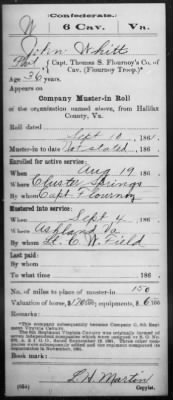 Confederate.
W 6 Cav. Va.
John Whitt
Pvt, Capt. Thomas S. Flournoy's Co. of Cav. (Flournoy Troop).*
Age 36 years.
Appears on
Company Muster-in Roll
of the organization named above, from Halifax
County, Va.
Roll dated
Sept 10, 186
Muster-in to date Not stated, 186
Enrolled for active service:
When Aug 19, 186
Where Cluster Springs
By whom Capt Flournoy
Mustered into service:
When Sept 4, 186
Where Ashland Va
By whom Lt. C. W. Field
Last paid:
By whom
To what time 186
No. of miles to place of muster-in 150
Valuation of horse, $ 170 00/100; equipments, $ 6 /100
Remarks:
*This company subsequently became Company G, 6th Regiment Virginia Cavalry.
Book mark:
(654) L. H. Martin
Copyist.